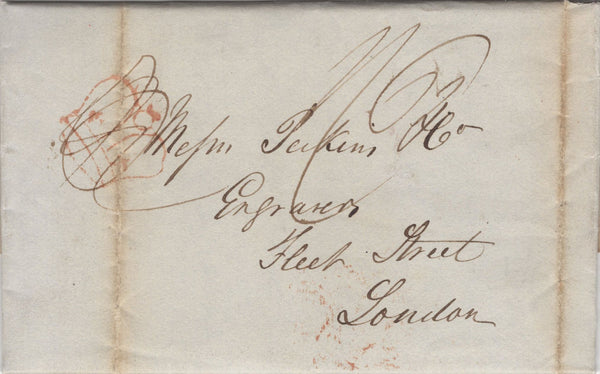 Messrs Perkins & Co
Engravers
Fleet Street
London